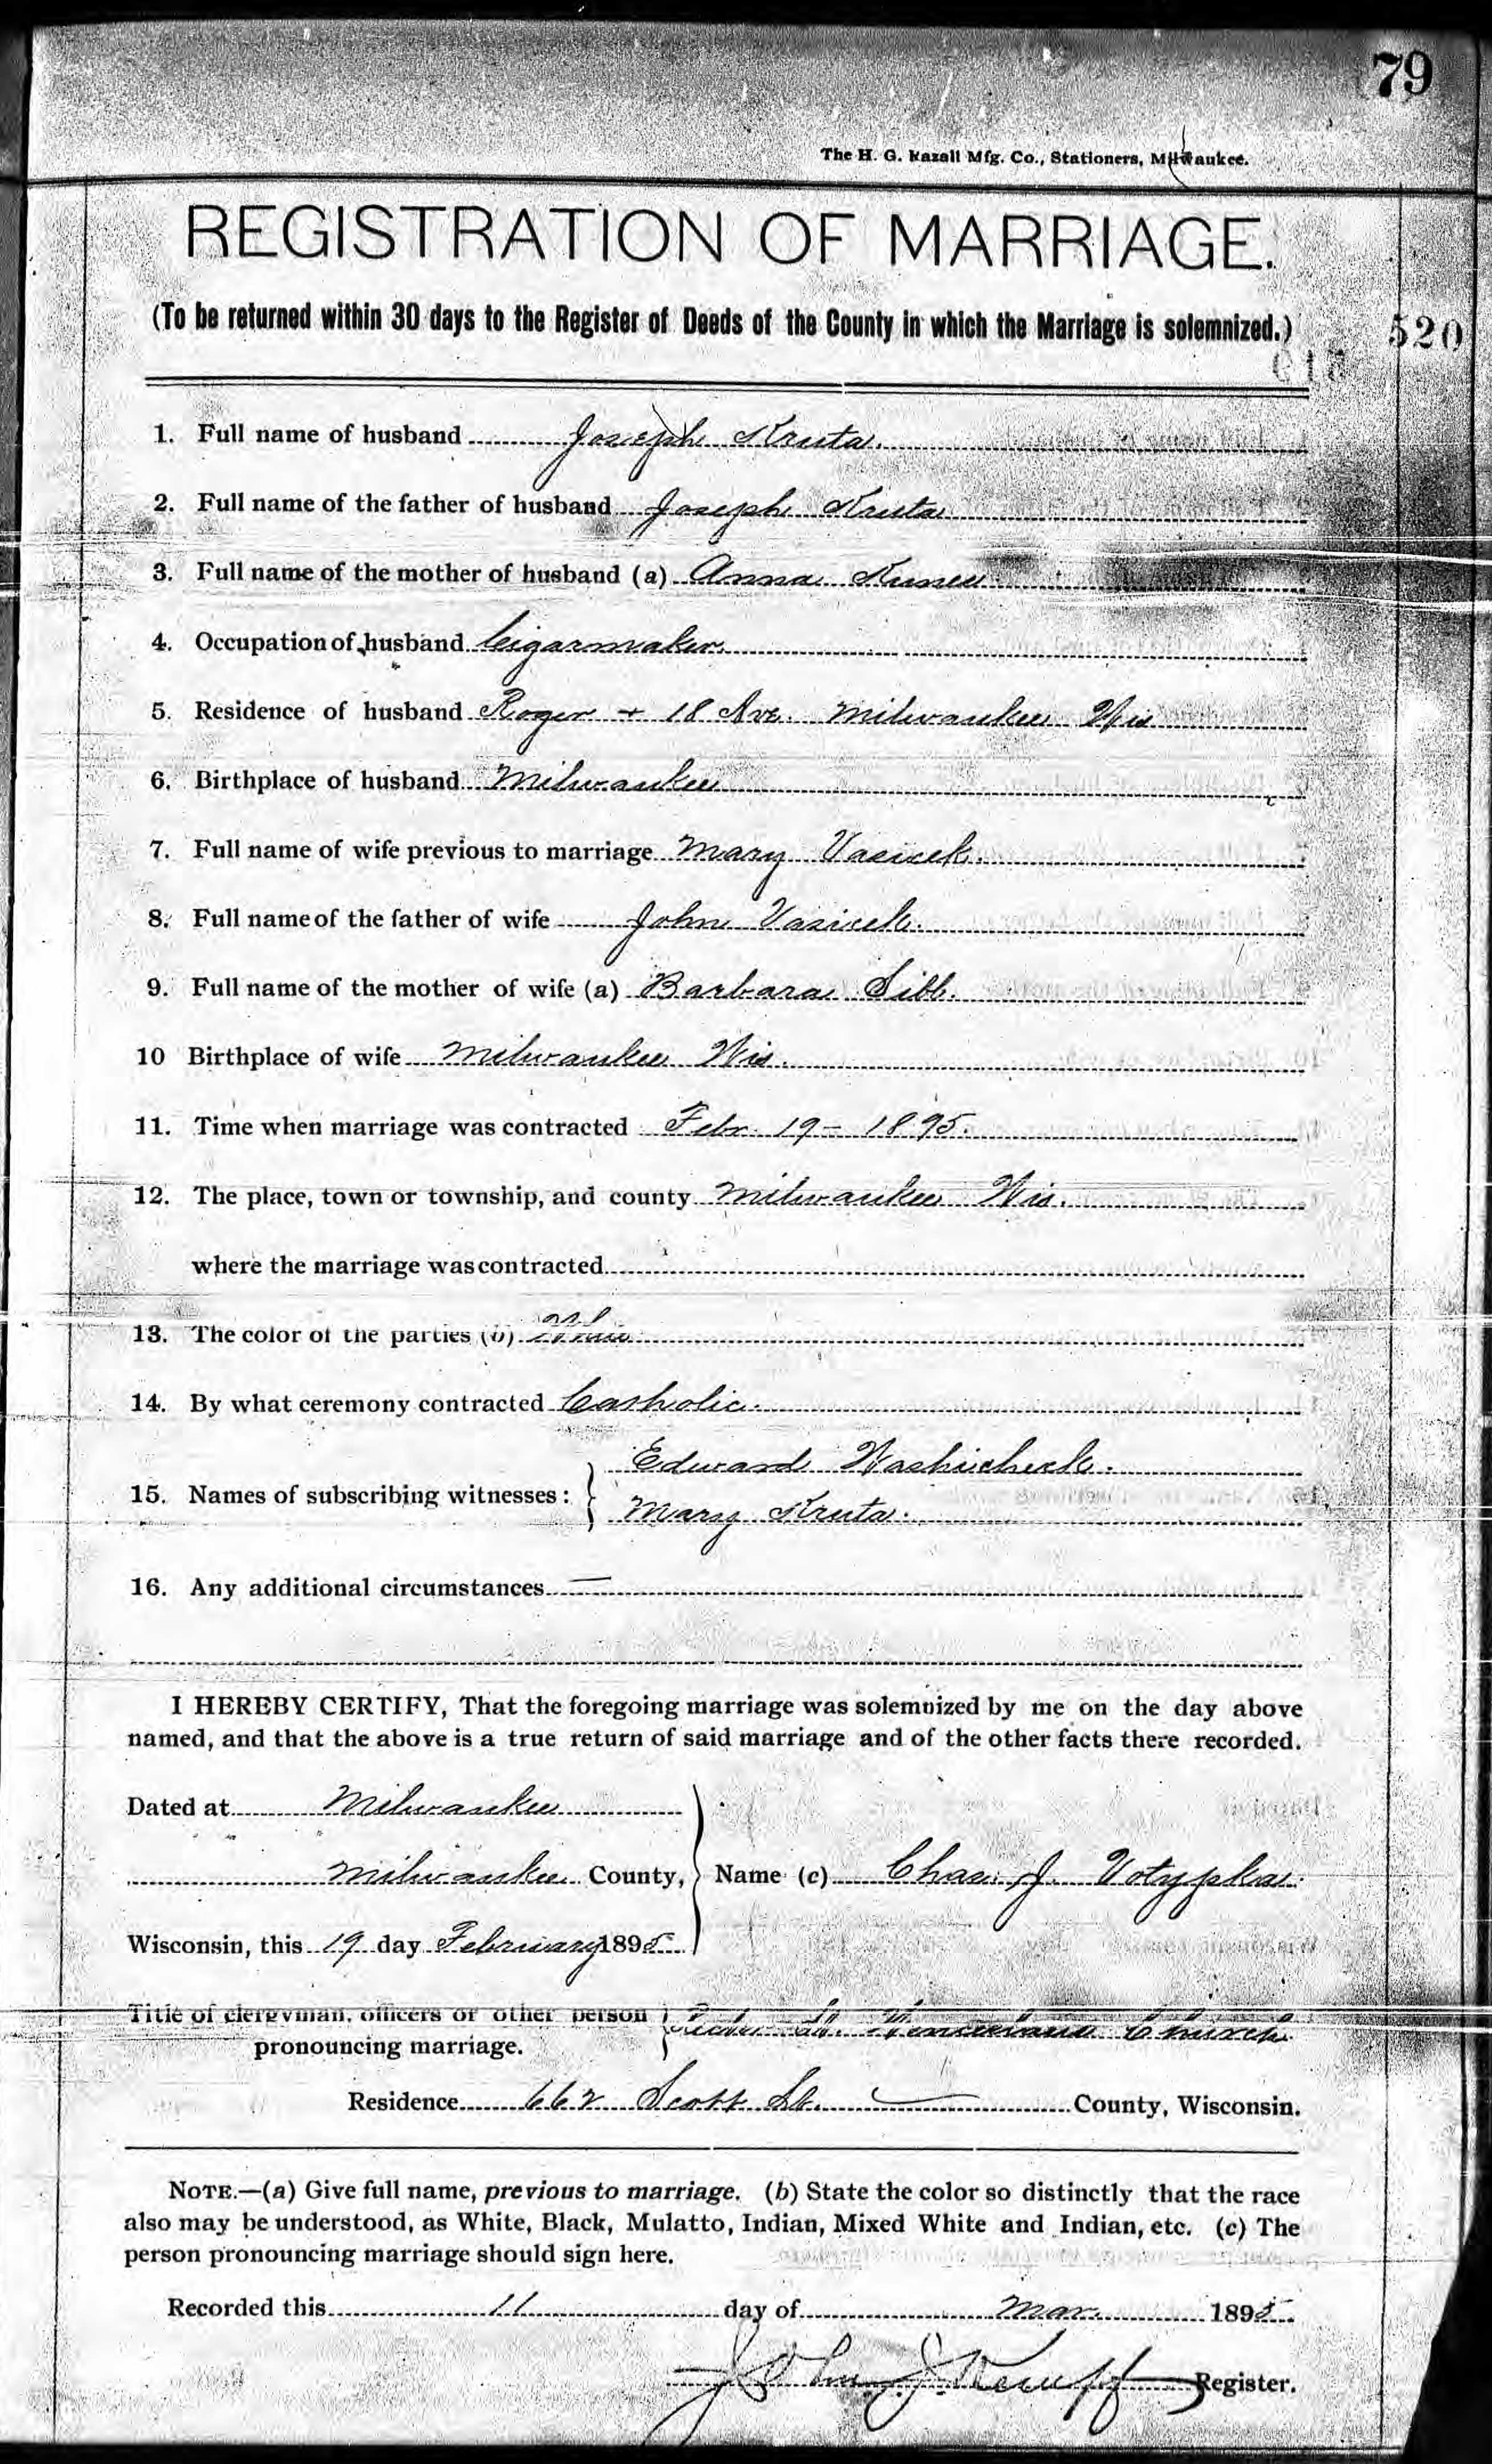 79
The H. G. Razall Mfg. Co., Stationers, Milwaukee.
REGISTRATION OF MARRIAGE.
(To be returned within 30 days to the Register of Deeds of the County in which the Marriage is solemnized.)
520
1. Full name of husband Joseph Kruta.
2. Full name of the father of husband Joseph Kruta
3. Full name of the mother of husband (a) Anna
4. Occupation of husband Cigarmaker.
5. Residence of husband Rogers + 18 Ave. Milwaukee Wis
6. Birthplace of husband Milwaukee
7. Full name of wife previous to marriage Mary Vasicek.
8. Full name of the father of wife John Vasicek.
9. Full name of the mother of wife (a) Barbara Sibb.
10 Birthplace of wife Milwaukee Wis.
11. Time when marriage was contracted Febr. 19 – 1895.
12. The place, town or township, and county Milwaukee Wis.
where the marriage was contracted
13. The color of the parties (b) White
14. By what ceremony contracted Catholic.
Edward Washicheck.
15. Names of subscribing witnesses:
Mary Kruta.
16. Any additional circumstances —
I HEREBY CERTIFY, That the foregoing marriage was solemnized by me on the day above
named, and that the above is a true return of said marriage and of the other facts there recorded.
Dated at Milwaukee
Milwaukee County, Name (c) Chas. J. Votypka.
Wisconsin, this 19 day February 1895
Title of clergyman, officers or other person St. Wenceslaus Church
pronouncing marriage.
Residence 662 Scott St. — County, Wisconsin.
NOTE.—(a) Give full name, previous to marriage. (b) State the color so distinctly that the race
also may be understood, as White, Black, Mulatto, Indian, Mixed White and Indian, etc. (c) The
person pronouncing marriage should sign here.
Recorded this 11 day of Mar. 1895
John J. Register.